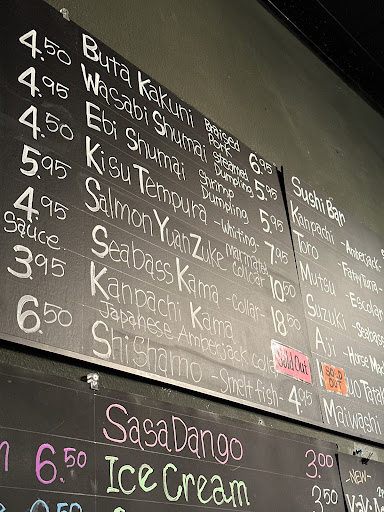 4.50 Buta Kakuni Braised Pork 6.95
4.95 Wasabi Shumai Steamed Dumpling 5.95
4.50 Ebi Shumai Shrimp Dumpling 5.95
5.95 Kisu Tempura -Whiting- 7.95
4.95 Salmon Yuan Zuke Marinated collar 10.50
Sauce
3.95 Seabass Kama -Collar- 18.50
Kanpachi Kama
Japanese Amberjack Sold Out
6.50 Shishamo -Smelt fish- 4.95
Sushi Bar
Kanpachi -Amberjack
Toro -Fatty Tuna
Mutsu -Escolar
Suzuki -Seabass
Aji -Horse Mac
SOLD OUT
Maiwashi
6.50 SasaDango 3.00
Ice Cream 3.50
-NEW-